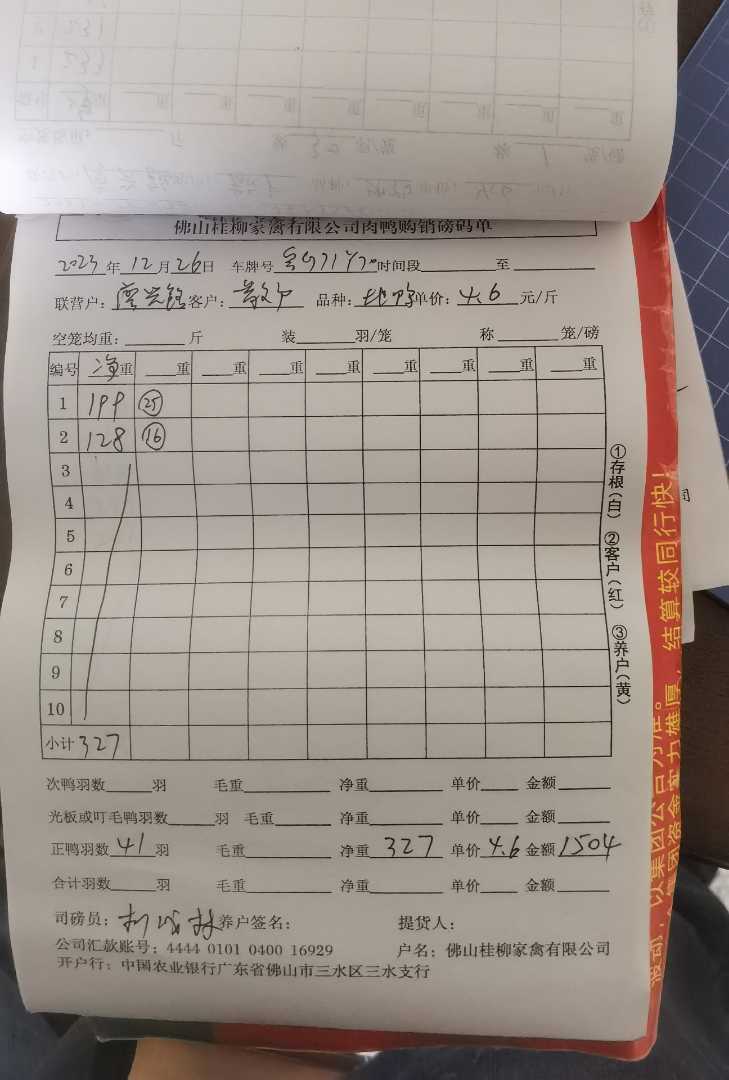 佛山桂柳家禽有限公司肉鸭购销磅码单
2023年12月26日 车牌号 时间段 至
联营户: 客户: 散户 品种: 单价: 4.6 元/斤
空笼均重: 斤 装 羽/笼 称 笼/磅
编号 净重 重 重 重 重 重 重 重 重
1 199 25
2 128 16
3
4
5
6
7
8
9
10
小计 327
次鸭羽数 羽 毛重 净重 单价 金额
光板或叮毛鸭羽数 羽 毛重 净重 单价 金额
正鸭羽数 41 羽 毛重 净重 327 单价 4.6 金额 1504
合计羽数 羽 毛重 净重 单价 金额
司磅员: 养户签名: 提货人:
公司汇款账号: 4444 0101 0400 16929 户名: 佛山桂柳家禽有限公司
开户行: 中国农业银行广东省佛山市三水区三水支行
①存根(白) ②客户(红) ③养户(黄)
结算较同行快!